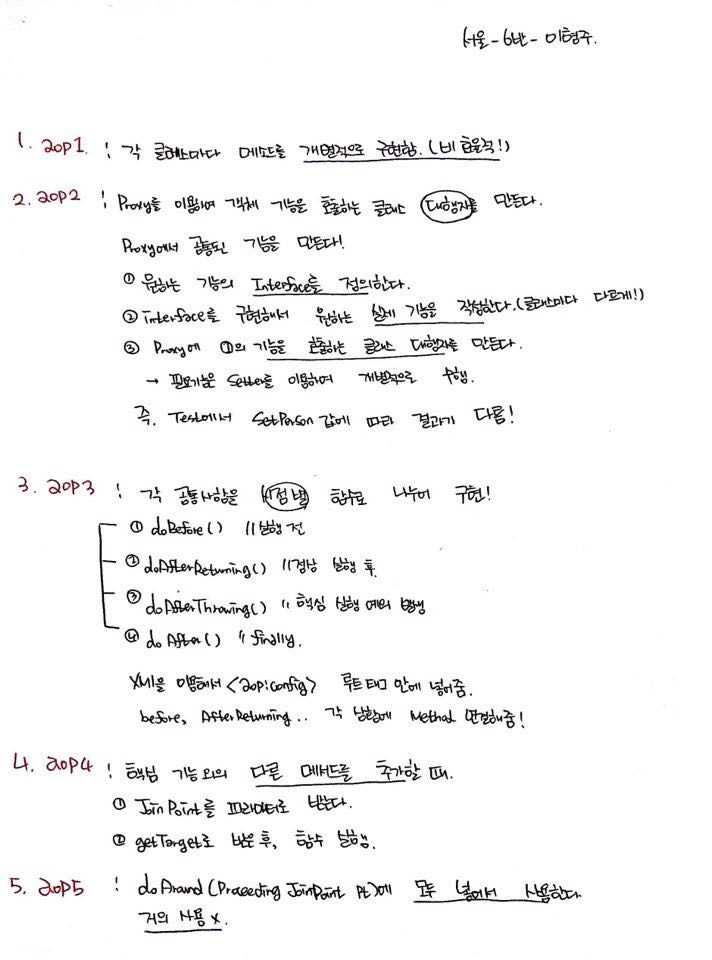 서울-6반-이형주.
1. aop1. : 각 클래스마다 메소드를 개별적으로 구현함. (비효율적!)
2. aop2 : Proxy를 이용하여 객체 기능을 호출하는 클래스 대행자를 만든다.
Proxy에서 공통된 기능을 만든다!
① 원하는 기능의 Interface를 정의한다.
② interface를 구현해서 원하는 실제 기능을 작성한다. (클래스마다 다르게!)
③ Proxy에 ①의 기능을 호출하는 클래스 대행자를 만든다.
→ 필요기능은 Setter를 이용하여 개별적으로 수행.
즉. Test에서 SetPerson 값에 따라 결과가 다름!
3. aop3 : 각 공통사항을 시점별 함수로 나누어 구현!
① doBefore() // 실행 전
② doAfterReturning() // 정상 실행 후
③ doAfterThrowing() // 핵심 실행 예외 발생
④ doAfter() // finally.
XMl을 이용해서 <aop:config> 루트 태그 안에 넣어줌.
before, AfterReturning.. 각 상황에 Method 연결해줌!
4. aop4 : 핵심 기능 외의 다른 메서드를 추가할 때.
① JoinPoint를 파라미터로 받는다.
② getTarget로 받은 후, 함수 실행.
5. aop5 : doAround (Proceeding JoinPoint Pt)에 모두 넣어서 사용한다.
거의 사용 x.